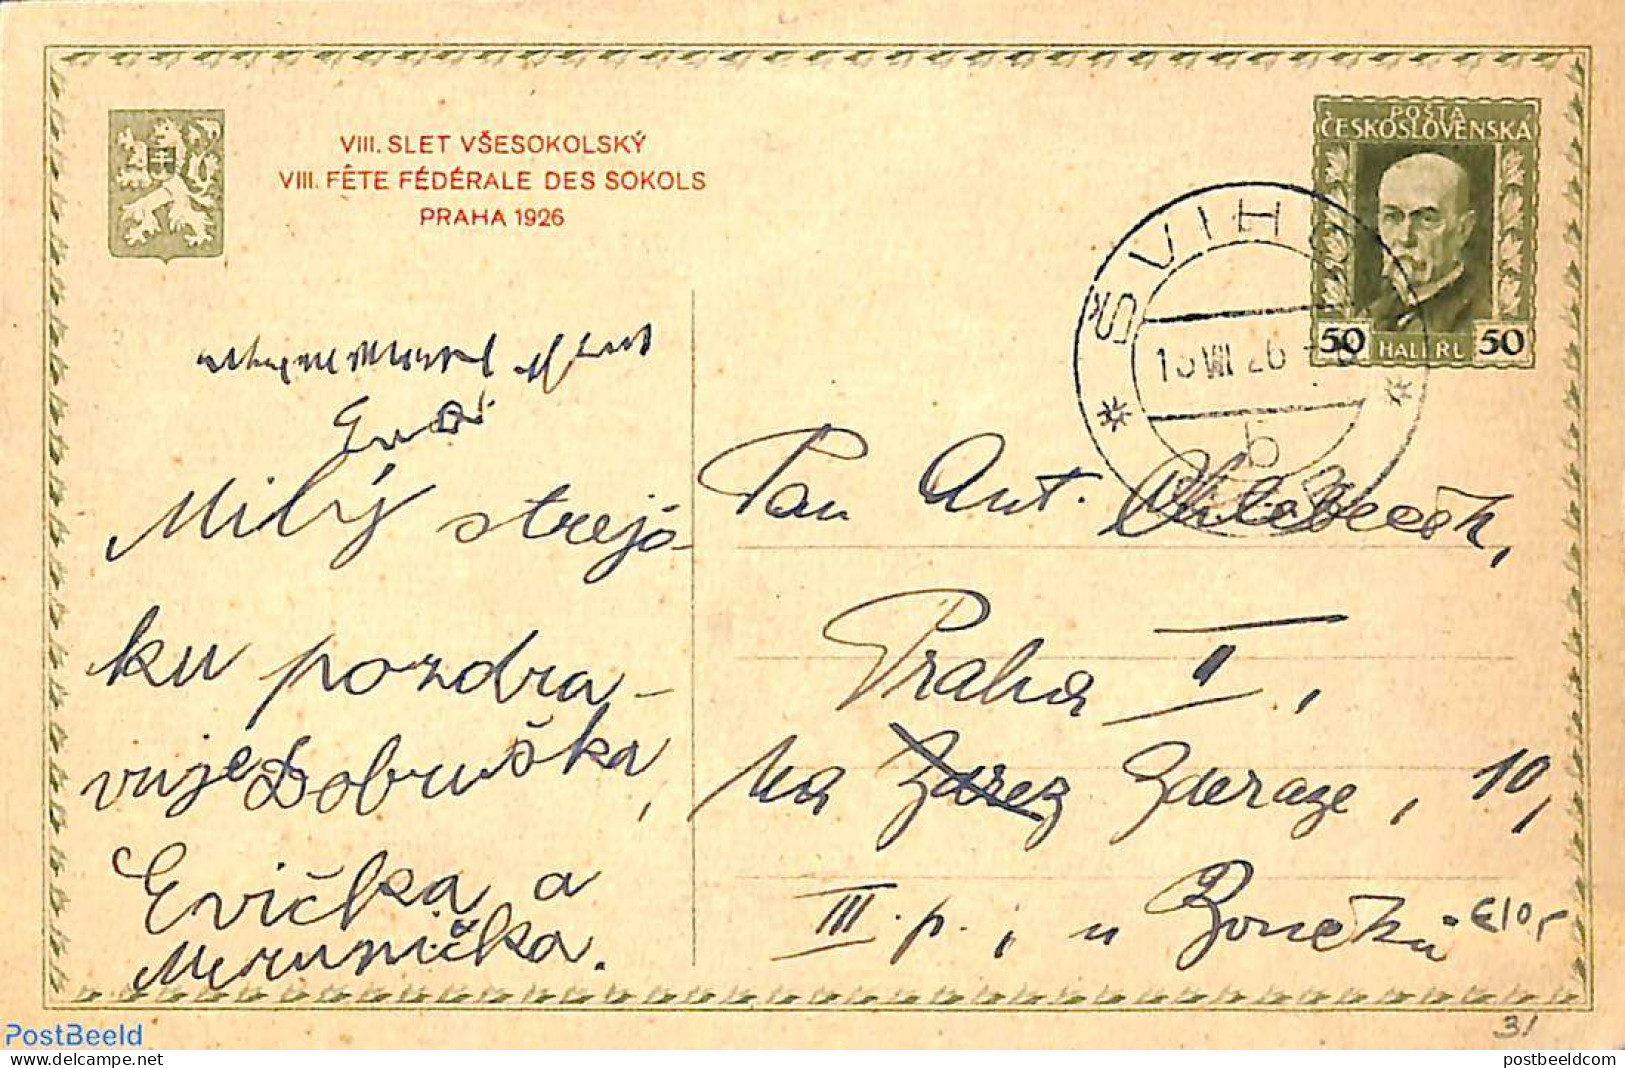 VIII. SLET VŠESOKOLSKÝ
VIII. FÊTE FÉDÉRALE DES SOKOLS
PRAHA 1926
POŠTA
ČESKOSLOVENSKA
50 HALÉRŮ 50
ŠVIHO
VII 26
b
Milý strejč-
ku pozdra-
vuje Dobruška,
Evička a
Merunička.
Pan Ant.
Praha II,
Na Zderaze, 10,
III. p., u
€10,-
31
PostBeeld
© postbeeld.com
postbeeldcom